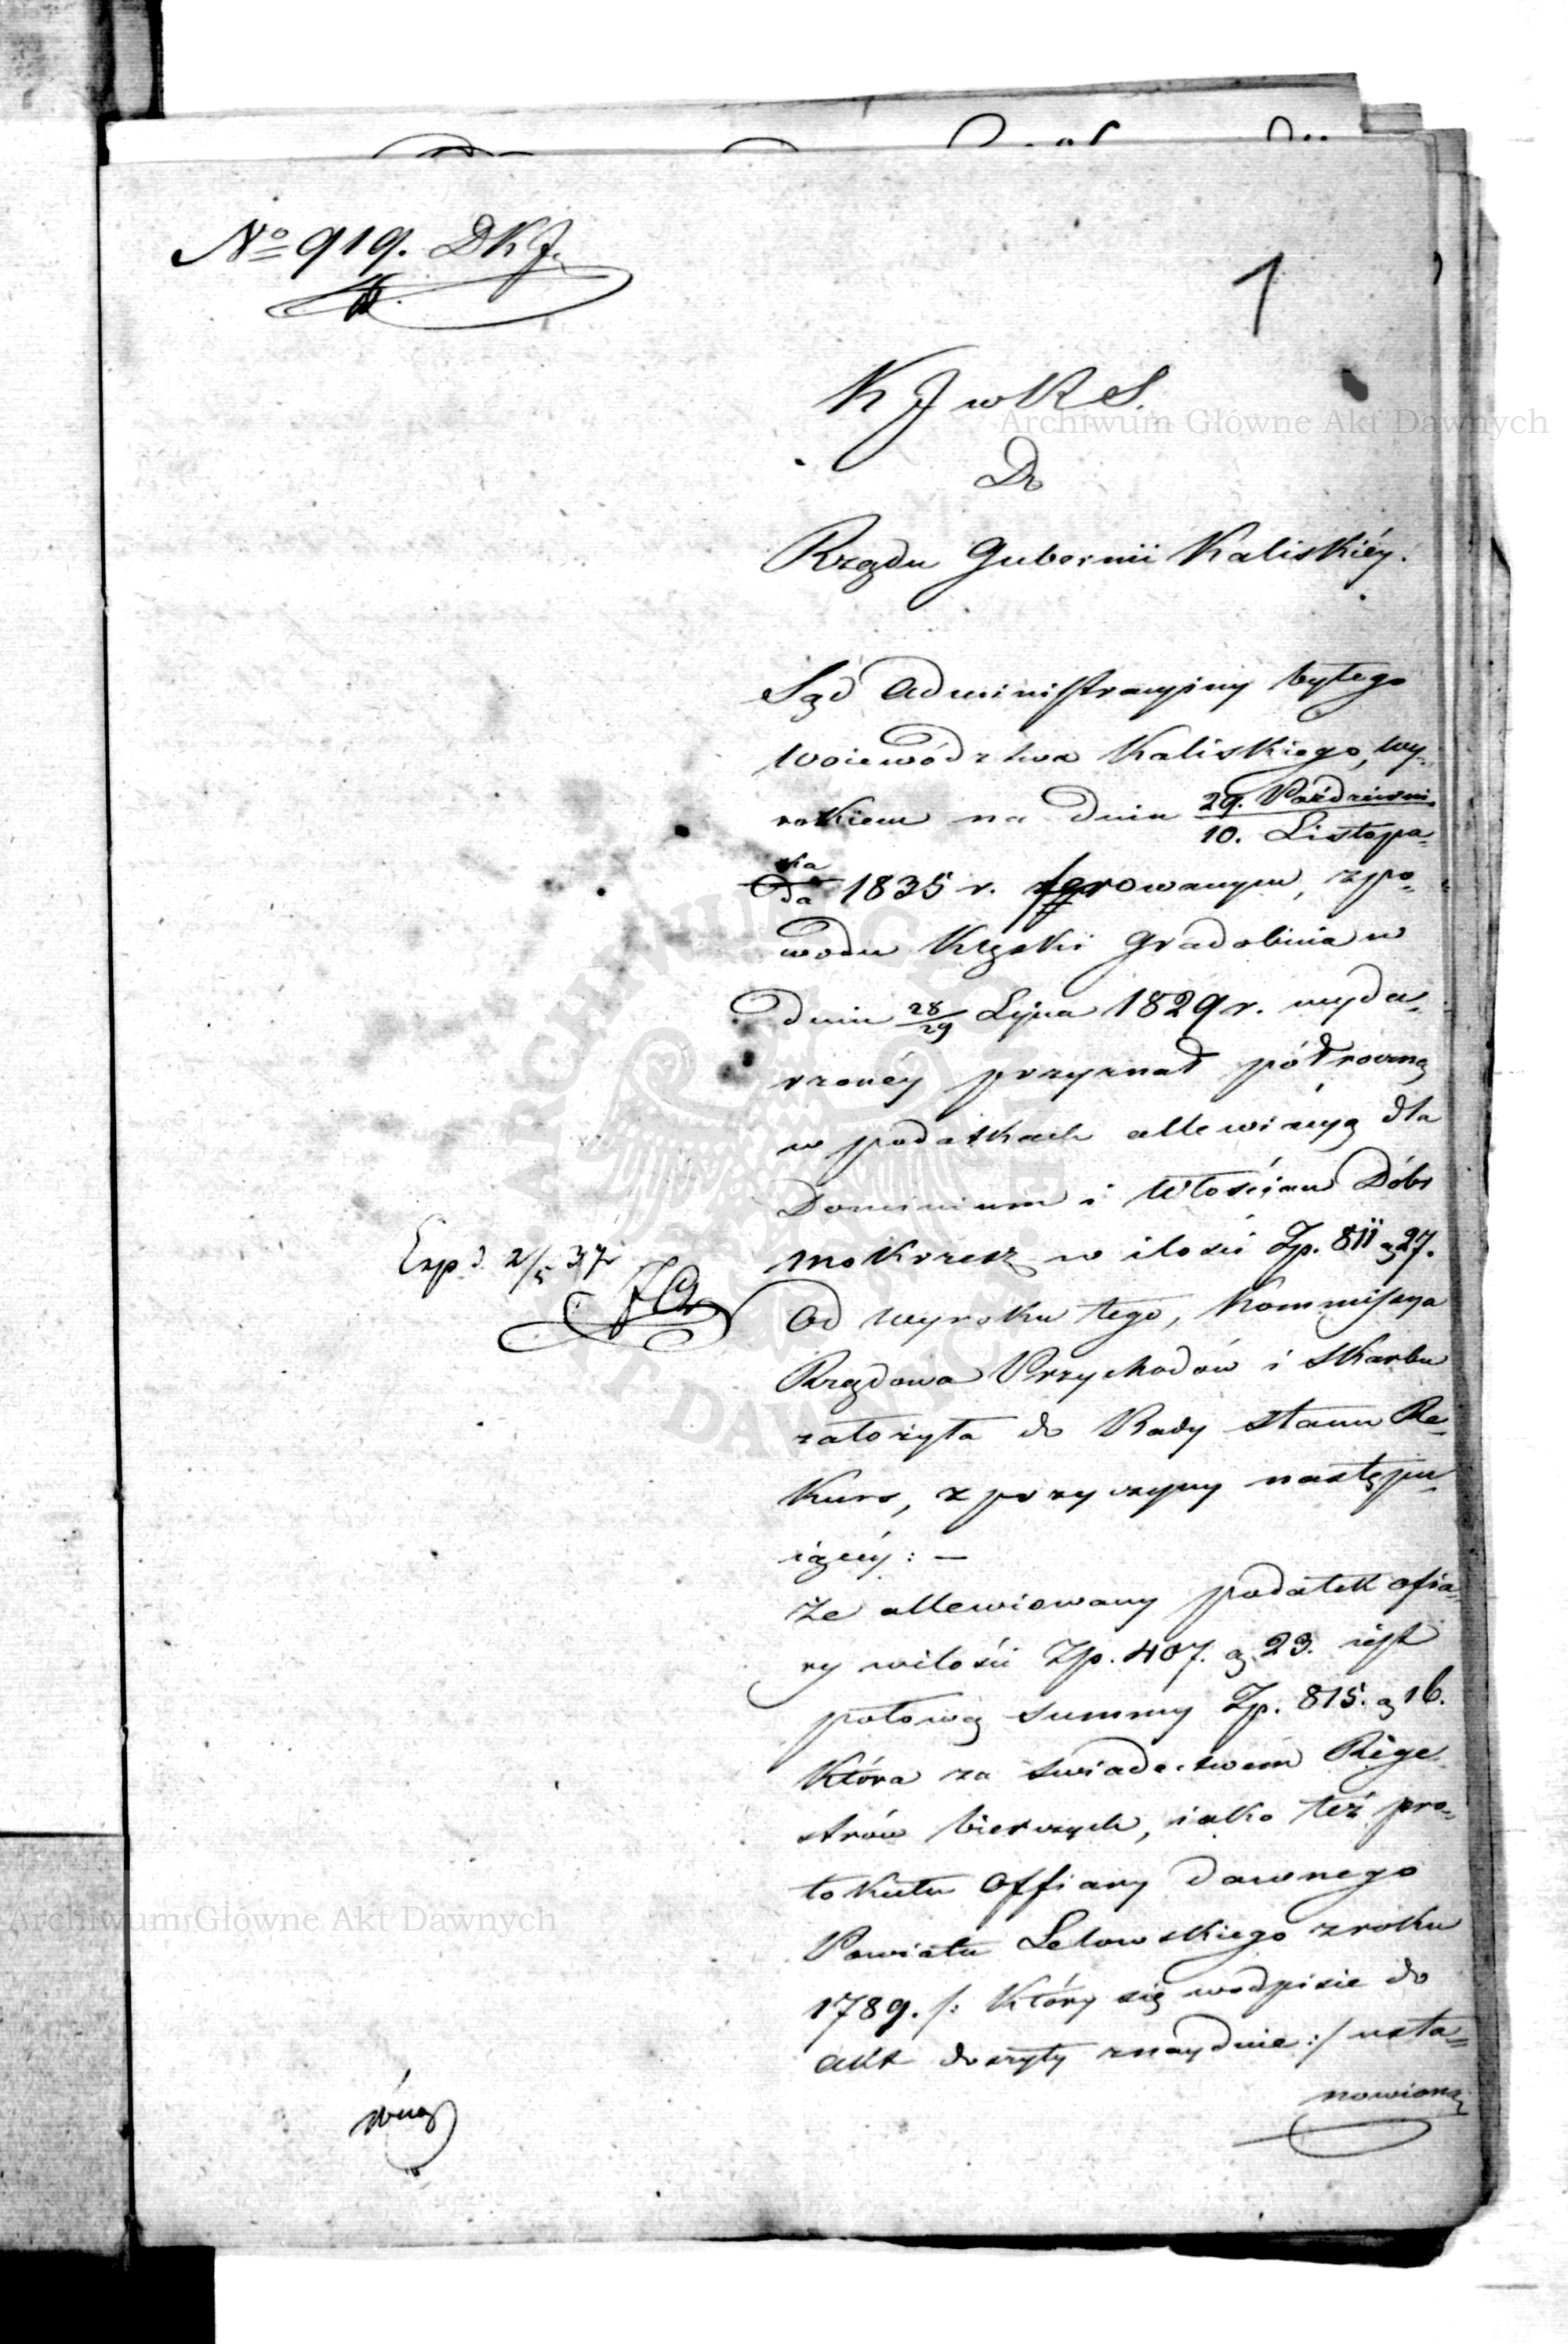 No 919. DKJ.
1
K J w R S.
Do
Rządu Gubernii Kaliskiéy.
Sąd Administracyiny byłego
Woiewództwa Kaliskiego, wy-
rokiem na dniu 29. Październi-
ka
10. Listopa-
da 1835 r. ferowanym, z po-
wodu klęski gradobicia w
dniu 28/29 Lipca 1829 r. wyda-
rzonéy przyznał półroczną
w podatkach allewiacyą dla
Dominium i Włościan Dóbr
Mokrzesz w ilości Zp. 811 g 27.
Exp d. 2/5 37
Od wyroku tego, Kommissya
Rządowa Przychodów i Skarbu
założyła do Rady Stanu Re-
kurs, z przyczyny następu-
iącéy: —
że allewiowany podatek ofia-
ry w ilości Zp. 407. g 23. iest
połową summy Zp. 815. g 16.
która za świadectwem Rege-
strów bierczych, iako też pro-
tokułu Offiary dawnego
Powiatu Lelowskiego z roku
1789. /: który się w odpisie do
akt doszyty znayduie :/ usta-
nowioną
Archiwum Główne Akt Dawnych
Archiwum Główne Akt Dawnych
ARCHIWUM GŁÓWNE AKT DAWNYCH